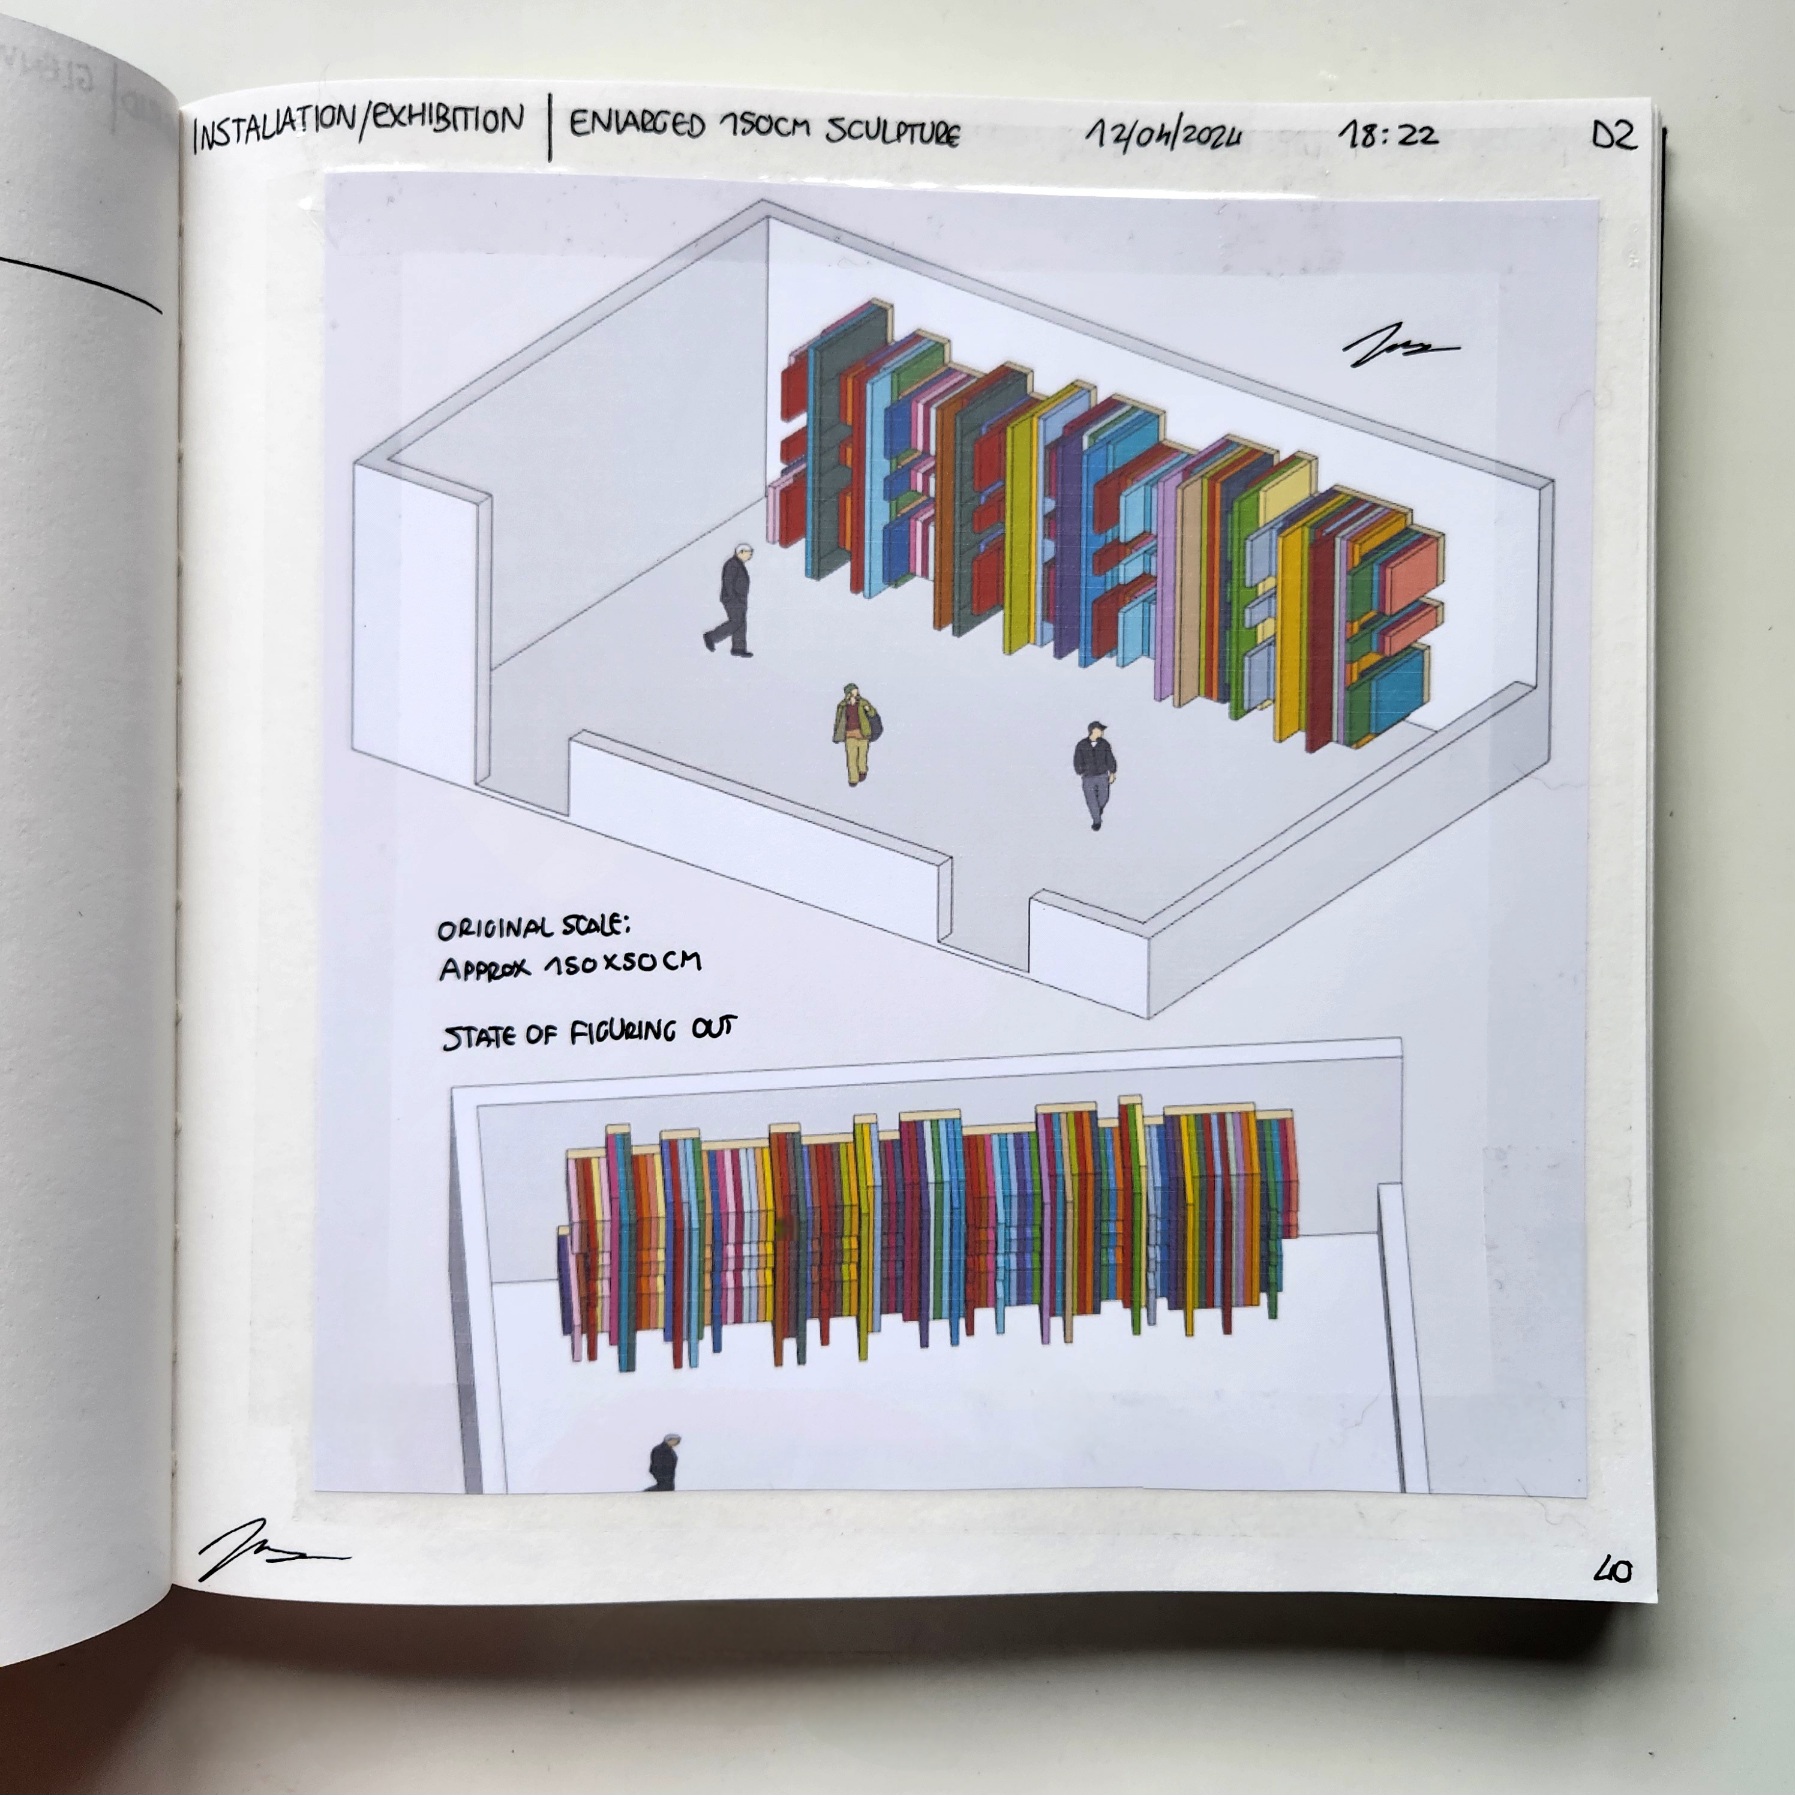 INSTALLATION/EXHIBITION | ENLARGED 150CM SCULPTURE 12/04/2024 18:22 D2
ORIGINAL SCALE:
APPROX 150X50CM
STATE OF FIGURING OUT
40